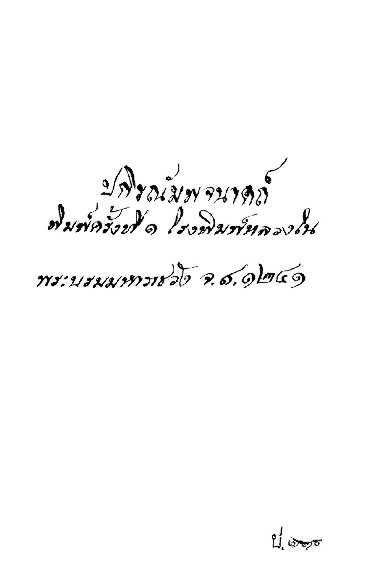 ปกีรณัมพจนาดถ์
พิมพ์ครั้งที่ ๑ โรงพิมพ์หลวงใน
พระบรมมหาราชวัง จ.ศ. ๑๒๔๑
ป.